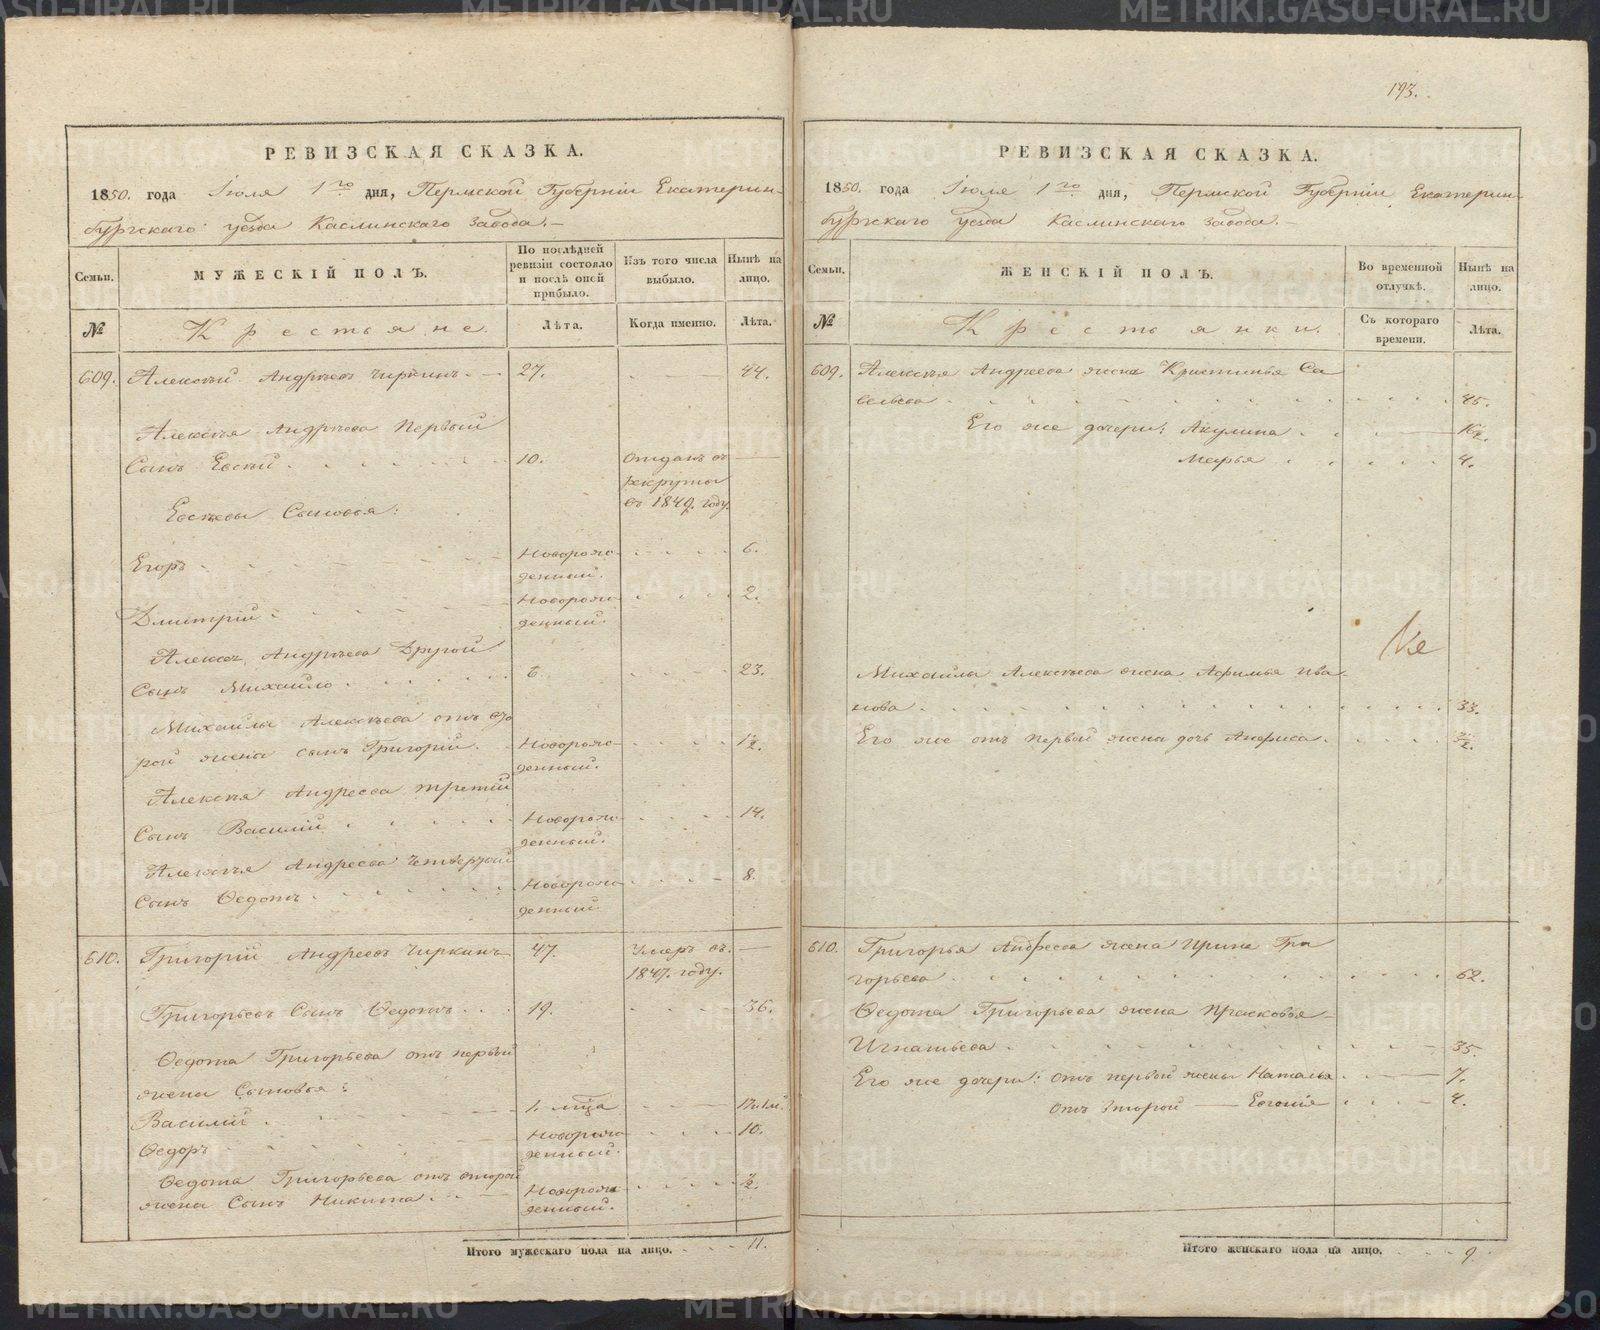 РЕВИЗСКАЯ СКАЗКА.
1850. года Іюля 1го дня, Пермской Губерніи Екатерин-
бургскаго уезда Каслинскаго Завода.-
Семьи.
МУЖЕСКІЙ ПОЛЪ.
По послѣдней ревизіи состояло и послѣ оной прибыло.
Изъ того числа выбыло.
Нынѣ на лицо.
№
Крестьяне.
Лѣта.
Когда именно.
Лѣта.
609. Алексѣй Андрѣевъ Чиркинъ. 27. 44.
Алексѣя Андрѣева Первый
Сынъ Евсѣй 10. Отданъ въ
рекруты
въ 1849. году.
Евсѣевы Сыновья:
Егоръ Новорож- 6.
денный.
Дмитрій Новорож- 2.
денный.
Андрѣева Другой
Сынъ Михайло 6 23.
Михайлы Алексѣева отъ вто
рой жены сынъ Григорій. Новорож- 1/2.
денный.
Алексѣя Андреева третій
Сынъ Василій Новорож- 14.
денный.
Алексѣя Андреева Четвертый
Сынъ Ѳедотъ Новорож- 8.
денный
610. Григорій Андреевъ Чиркинъ 47. Умеръ въ
1847. году.
Григорьевъ Сынъ Ѳедотъ 19. 36.
Ѳедота Григорьева отъ первой
жены Сыновья:
Василій 1. м-ца
Ѳедоръ Новорож- 10.
денный.
Ѳедота Григорьева отъ второй
жены Сынъ Никита Новорож- 1/2.
денный.
Итого мужескаго пола на лицо. 11.
193.
РЕВИЗСКАЯ СКАЗКА.
1850. года Іюля 1го дня, Пермской Губерніи Екатерин-
бургскаго уезда Каслинскаго Завода.-
Семьи.
ЖЕНСКІЙ ПОЛЪ.
Во временной отлучкѣ.
Нынѣ на лицо.
№
Крестьянки.
Съ котораго времени.
Лѣта.
609. Алексѣя Андреева жена Кристинья Са
вельева 45.
Его же дочери: Акулина
Марья 4.
Михайлы Алексѣева жена Афимья Ива
нова 33.
Его же отъ первой жены дочь Анфиса.
610. Григорья Андреева жена Ирина Гри
горьева 62.
Ѳедота Григорьева жена Прасковья
Игнатьева 35.
Его же дочери: отъ первой жены Наталья 7.
отъ второй — Евгенія 4.
Итого женскаго пола на лицо. 9.
METRIKI.GASO-URAL.RU